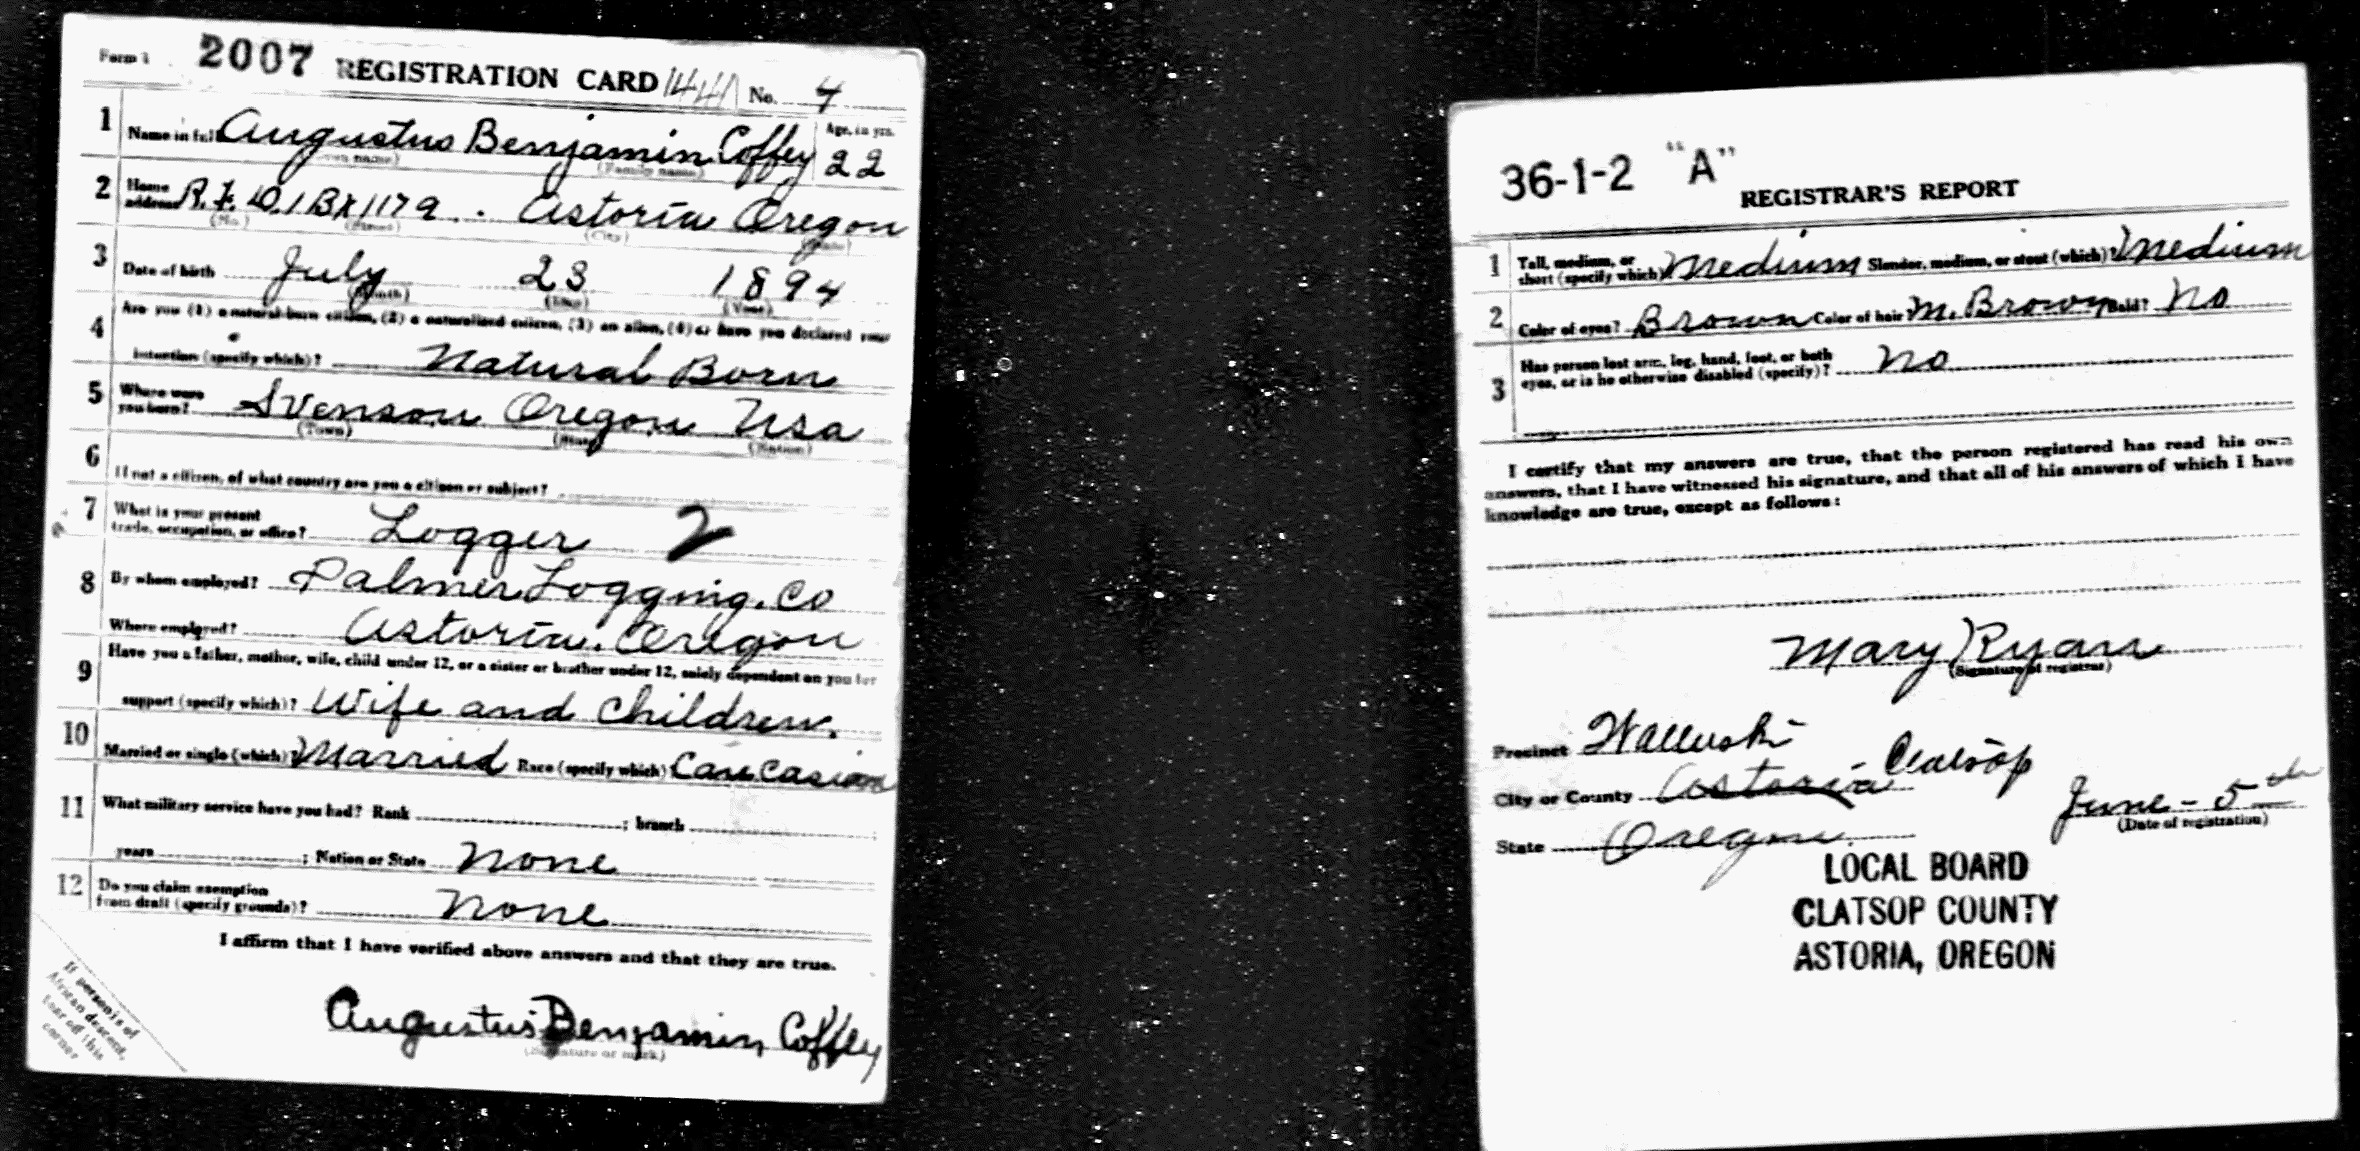 Form 1 2007 REGISTRATION CARD 1441 No. 4
1 Name in full Augustus Benjamin Coffey Age, in yrs. 22
(Given name) (Family name)
2 Home address R.F.D.1 BX 117 a. Astoria Oregon
(No.) (Street) (City) (State)
3 Date of birth July 23 1894
(Month) (Day) (Year)
4 Are you (1) a natural-born citizen, (2) a naturalized citizen, (3) an alien, (4) or have you declared your
intention (specify which)? Natural Born
5 Where were you born? Svenson Oregon USA
(Town) (State) (Nation)
6 If not a citizen, of what country are you a citizen or subject?
7 What is your present
trade, occupation, or office? Logger 2
8 By whom employed? Palmer Logging. Co
Where employed? Astoria. Oregon
9 Have you a father, mother, wife, child under 12, or a sister or brother under 12, solely dependent on you for
support (specify which)? Wife and Children.
10 Married or single (which)? Married Race (specify which)? Caucasian
11 What military service have you had? Rank ; branch
years ; Nation or State None
12 Do you claim exemption
from draft (specify grounds)? None
I affirm that I have verified above answers and that they are true.
Augustus Benjamin Coffey
(Signature or mark)
If person is of
African descent,
tear off this
corner
36-1-2 "A"
REGISTRAR'S REPORT
1 Tall, medium, or
short (specify which)? Medium Slender, medium, or stout (which)? Medium
2 Color of eyes? Brown Color of hair? M. Brown Bald? No
3 Has person lost arm, leg, hand, foot, or both
eyes, or is he otherwise disabled (specify)? No
I certify that my answers are true, that the person registered has read his own
answers, that I have witnessed his signature, and that all of his answers of which I have
knowledge are true, except as follows:
Mary Ryan
(Signature of registrar)
Precinct Walluski
City or County Astoria Clatsop
State Oregon
June - 5th
(Date of registration)
LOCAL BOARD
CLATSOP COUNTY
ASTORIA, OREGON